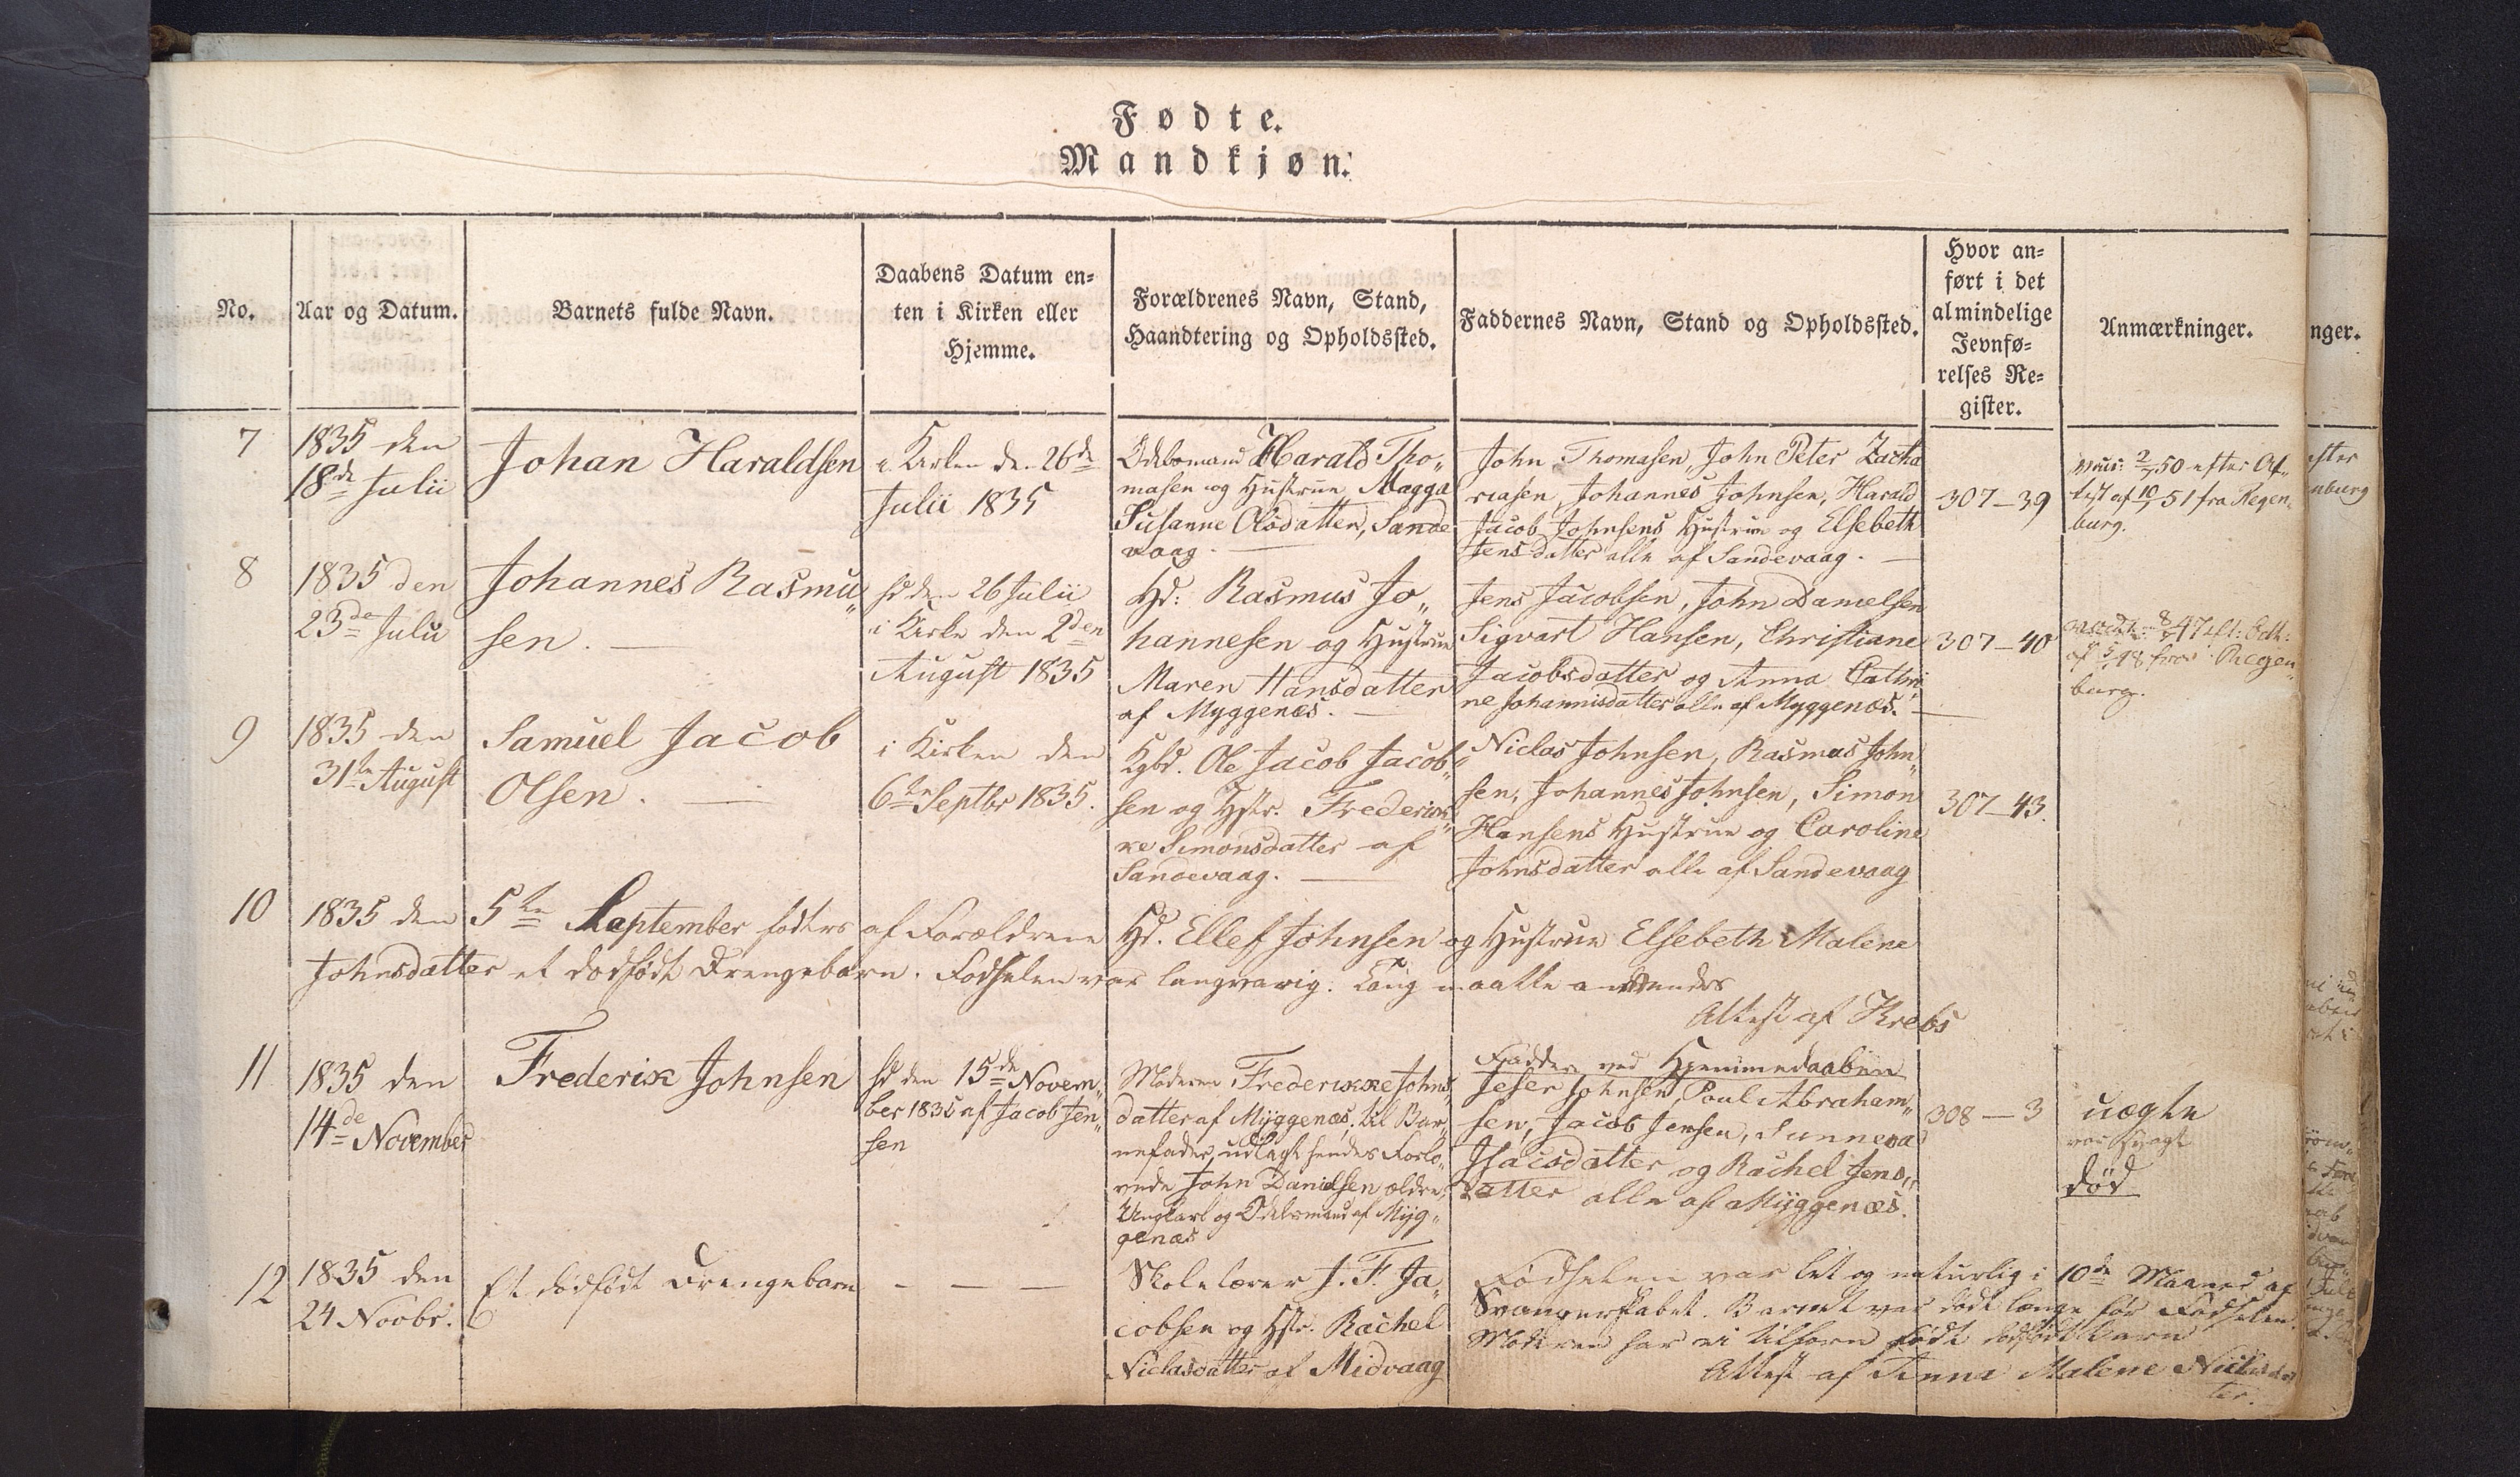 Fødte.
Mandkjøn.
No.
Aar og Datum.
Barnets fulde Navn.
Daabens Datum en=
ten i Kirken eller
Hjemme.
Forældrenes Navn, Stand,
Haandtering og Opholdssted.
Faddernes Navn, Stand og Opholdssted.
Hvor an=
ført i det
almindelige
Jevnfø=
relses Re=
gister.
Anmærkninger.
7
1835 den
18de Julii
Johan Haraldsen
i Kirken den 26de
Julii 1835
Odelsmand Harald Tho„
masen og Hustrue Magga
Susanne Olsdatter, Sande
vaag.
John Thomasen, John Peter Zacha
riasen, Johannes Johnsen, Harald
Jacob Johnsens Hustrue og Elsebeth
Jensdatter alle af Sandevaag.
307–39
vac: 2/7 50 efter At„
test af 10/7 51 fra Regen„
burg.
8
1835 den
23de Julii
Johannes Rasmu„
sen.
hd den 26 Julii
i Kirke den 2den
August 1835
Hd: Rasmus Jo„
hannesen og Hustrue
Maren Hansdatter
af Myggenæs.
Jens Jacobsen, John Danielsen
Sigvart Hansen, Christiane
Jacobsdatter og Anna Cathri
ne Johannisdatter alle af Myggenæs.
307–40
fra Regen„
burg.
9
1835 den
31te August
Samuel Jacob
Olsen.
i Kirken den
6te Septbr 1835.
Kgbd. Ole Jacob Jacob„
sen og Hstr. Frederik„
ke Simonsdatter af
Sandevaag.
Niclas Johnsen, Rasmus John„
sen, Johannes Johnsen, Simon
Hansens Hustrue og Caroline
Johnsdatter alle af Sandevaag
307–43.
10
1835 den 5te September fødtes af Forældrene Hd. Ellef Johnsen og Hustrue Elsebeth Malene
Johnsdatter et dødfødt Drengebarn. Fødselen var langvarig. Tang maatte anvendes
Attest af Krebs
11
1835 den
14de November
Frederik Johnsen
hd den 15de Novem„
ber 1835 af Jacob Jen„
sen
Moderen Frederikke Johns„
datter af Myggenæs, til Bar„
nefader udlagt hendes Forlo„
vede John Danielsen ældre,
Ungkarl og Odelsmand af Myg„
genæs
Faddere ved Hjemmedaaben
Jeser Johnsen, Poul Abraham„
sen, Jacob Jensen, Sunneva
Isacsdatter og Rachel Jens„
datter alle af Myggenæs.
308–3
uægte
var svagt
død
12
1835 den
24 Novbr.
Et dødfødt Drengebarn
– – –
Skolelærer J. F. Ja„
cobsen og Hstr. Rachel
Niclasdatter af Midvaag
Fødselen var let og naturlig i 10de Maaned af
Svangerskabet. Barnet var dødt længe før Fødselen.
Moderen har ei tilforn født dødfødt barn
Attest af Anna Malene Niclasdat
ter.
nger.
efter
enburg